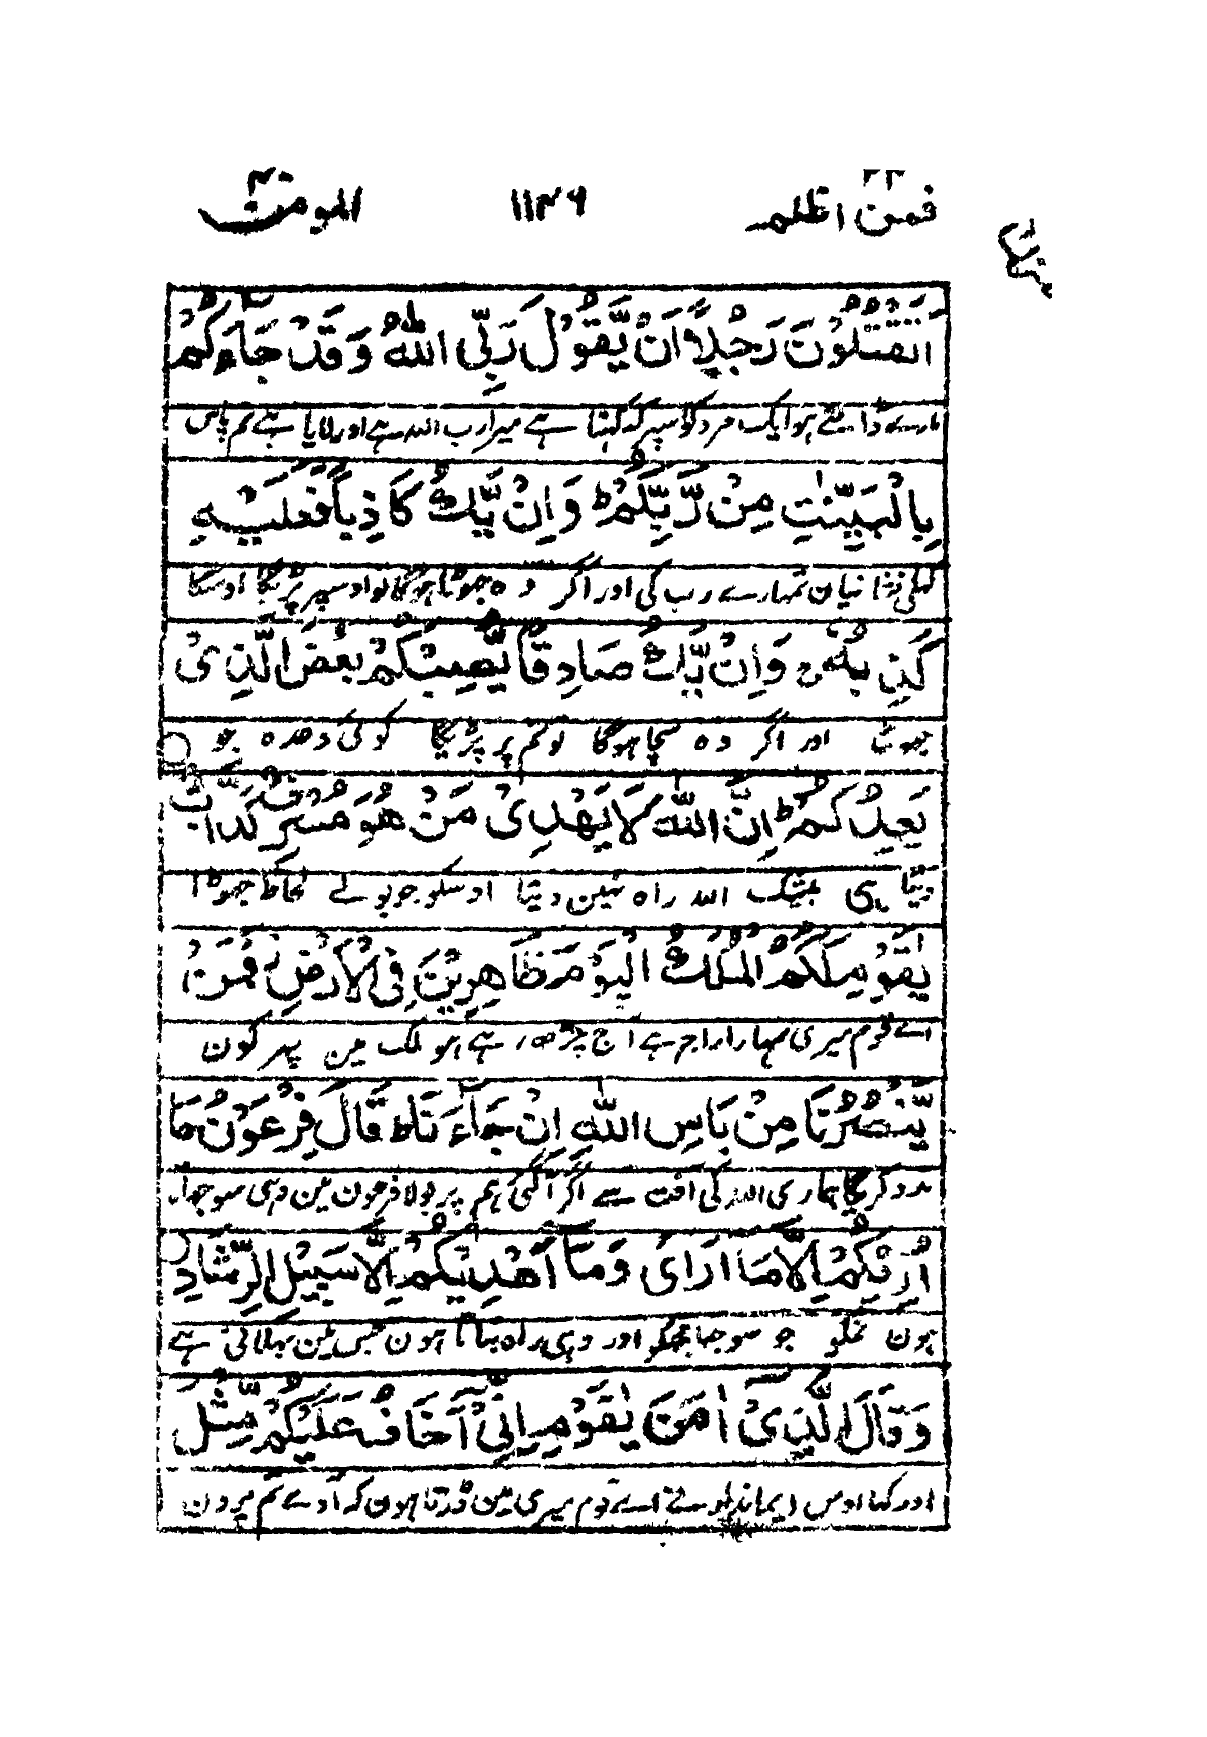 فمن اظلم ۲۴ ۱۱۴۶ المؤمن ۴۰
اَتَقْتُلُوْنَ رَجُلًا اَنْ يَّقُوْلَ رَبِّىَ اللّٰهُ وَقَدْ جَآءَكُمْ
مارے ڈالتے ہو ایک مرد کو اسپر کہ کہتا ہے میرا رب اللہ ہے اور لایا ہے تم پاس
بِالْبَيِّنٰتِ مِنْ رَّبِّكُمْ ؕ وَاِنْ يَّكُ كَاذِبًا فَعَلَيْهِ
کھلی نشانیان تمہارے رب کی اور اگر وہ جھوٹا ہوگا تو اوسپر پڑیگا اوسکا
كَذِبُهٗ ۚ وَاِنْ يَّكُ صَادِقًا يُّصِبْكُمْ بَعْضُ الَّذِىْ
جھوٹ اور اگر وہ سچا ہوگا تو تم پر پڑیگا کوئی وعدہ جو
يَعِدُكُمْ ؕ اِنَّ اللّٰهَ لَا يَهْدِىْ مَنْ هُوَ مُسْرِفٌ كَذَّابٌ
دیتا ہی بیشک اللہ راہ نہین دیتا اوسکو جو بولے لحاظ جھوٹا
يٰقَوْمِ لَكُمُ الْمُلْكُ الْيَوْمَ ظَاهِرِيْنَ فِى الْاَرْضِ ۫ فَمَنْ
اے قوم میری تمہارا راج ہے آج چڑھ رہے ہو ملک مین پھر کون
يَّنْصُرُنَا مِنْۢ بَاْسِ اللّٰهِ اِنْ جَآءَنَا ؕ قَالَ فِرْعَوْنُ مَآ
مدد کریگا ہماری اللہ کی آفت سے اگر آگئی ہم پر بولا فرعون مین وہی سوجھاتا
اُرِيْكُمْ اِلَّا مَآ اَرٰى وَمَآ اَهْدِيْكُمْ اِلَّا سَبِيْلَ الرَّشَادِ
ہون تمکو جو سوجھا مجھکو اور وہی راہ بتاتا ہون جس مین بھلائی ہے
وَقَالَ الَّذِىْٓ اٰمَنَ يٰقَوْمِ اِنِّىْٓ اَخَافُ عَلَيْكُمْ مِّثْلَ
اور کہا اوس ایماندار نے اے قوم میری مین ڈرتا ہون کہ آوے تم پر دن